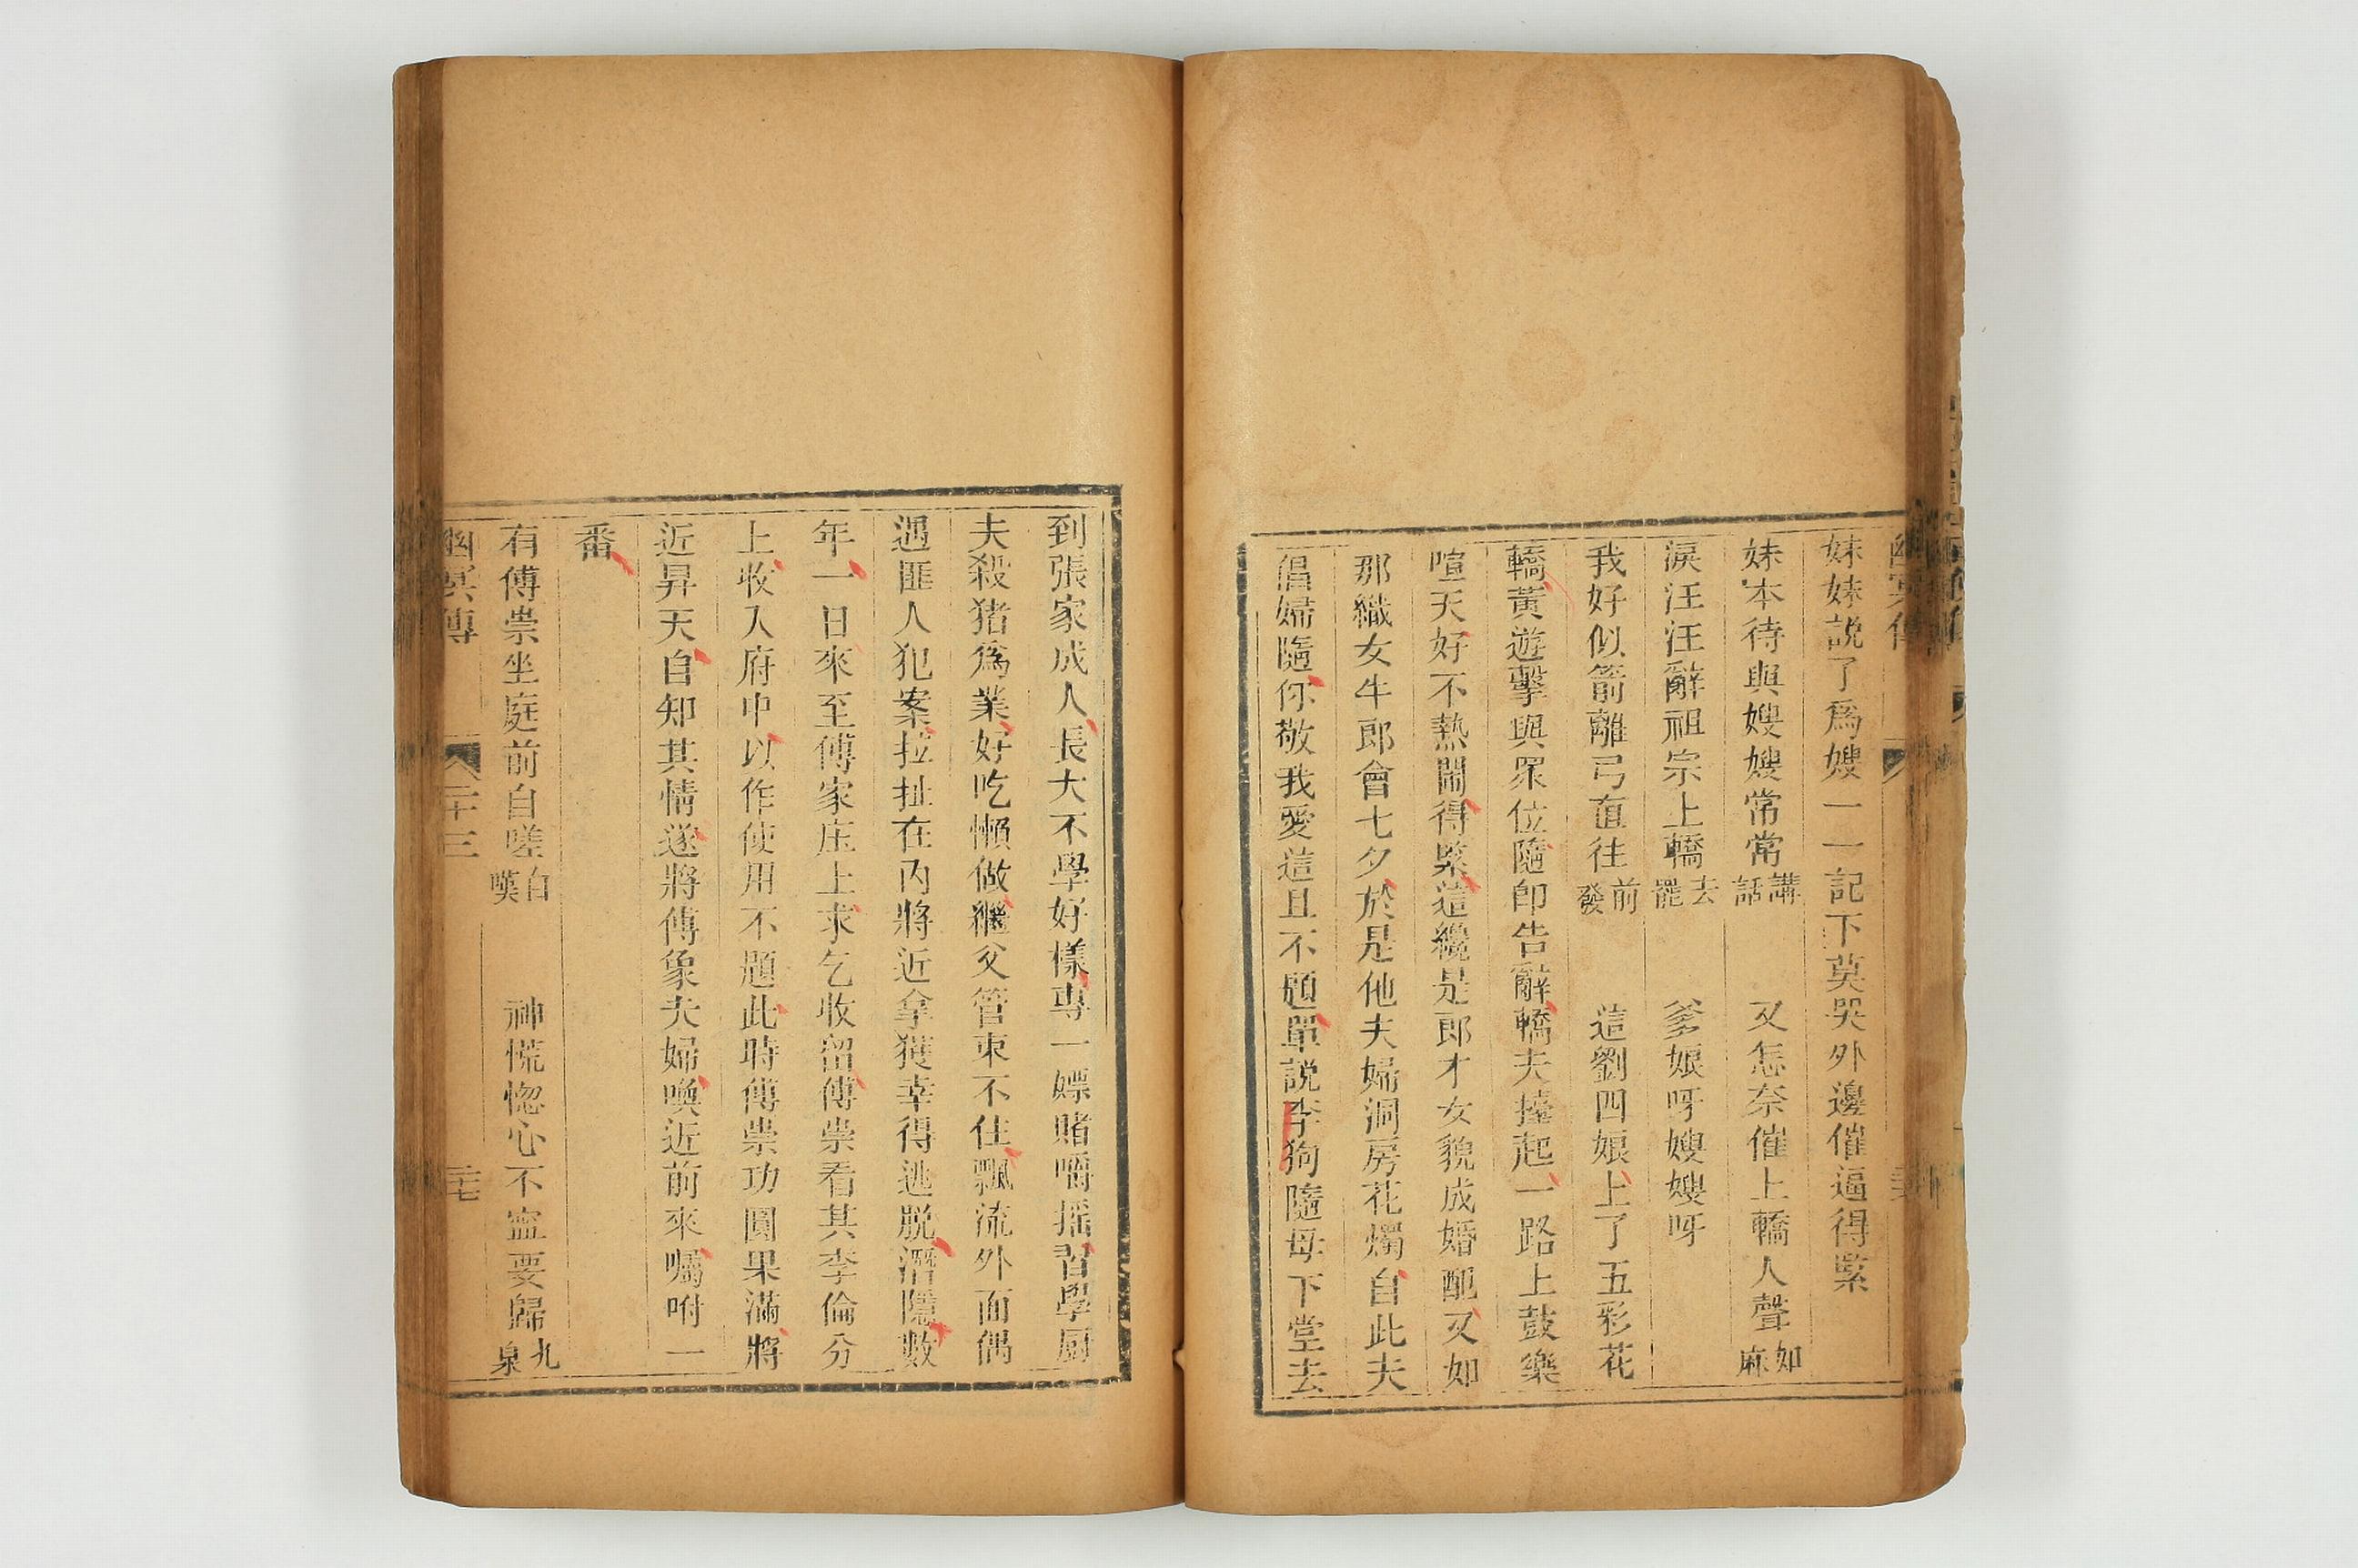 妹妹説了爲嫂一一記下莫哭外邊催逼得緊
妹本待與嫂嫂常常講話 又怎奈催上轎人聲如麻
淚汪汪辭祖宗上轎去罷 爹娘呀嫂嫂呀
我好似箭離弓直往前發 這劉四娘上了五彩花
轎黃遊擊與眾位隨卽告辭轎夫擡起一路上鼓樂
喧天好不熱鬧得緊這纔是郎才女貌成婚配又如
那織女牛郎會七夕於是他夫婦洞房花燭自此夫
倡婦隨你敬我愛這且不題單説李狗隨母下堂去
到張家成人長大不學好樣專一嫖賭嚼摇習學厨
夫殺猪爲業好吃懶做繼父管束不住飄流外面偶
遇匪人犯案拉扯在內將近拿獲幸得逃脱潛隱數
年一日來至傅家庄上求乞收留傅崇看其李倫分
上收入府中以作使用不題此時傅崇功圓果滿將
近昇天自知其情遂將傅象夫婦喚近前來囑咐一
番
有傅崇坐庭前自嗟自嘆 神慌惚心不寍要歸九泉
幽冥傳 二十三 三七